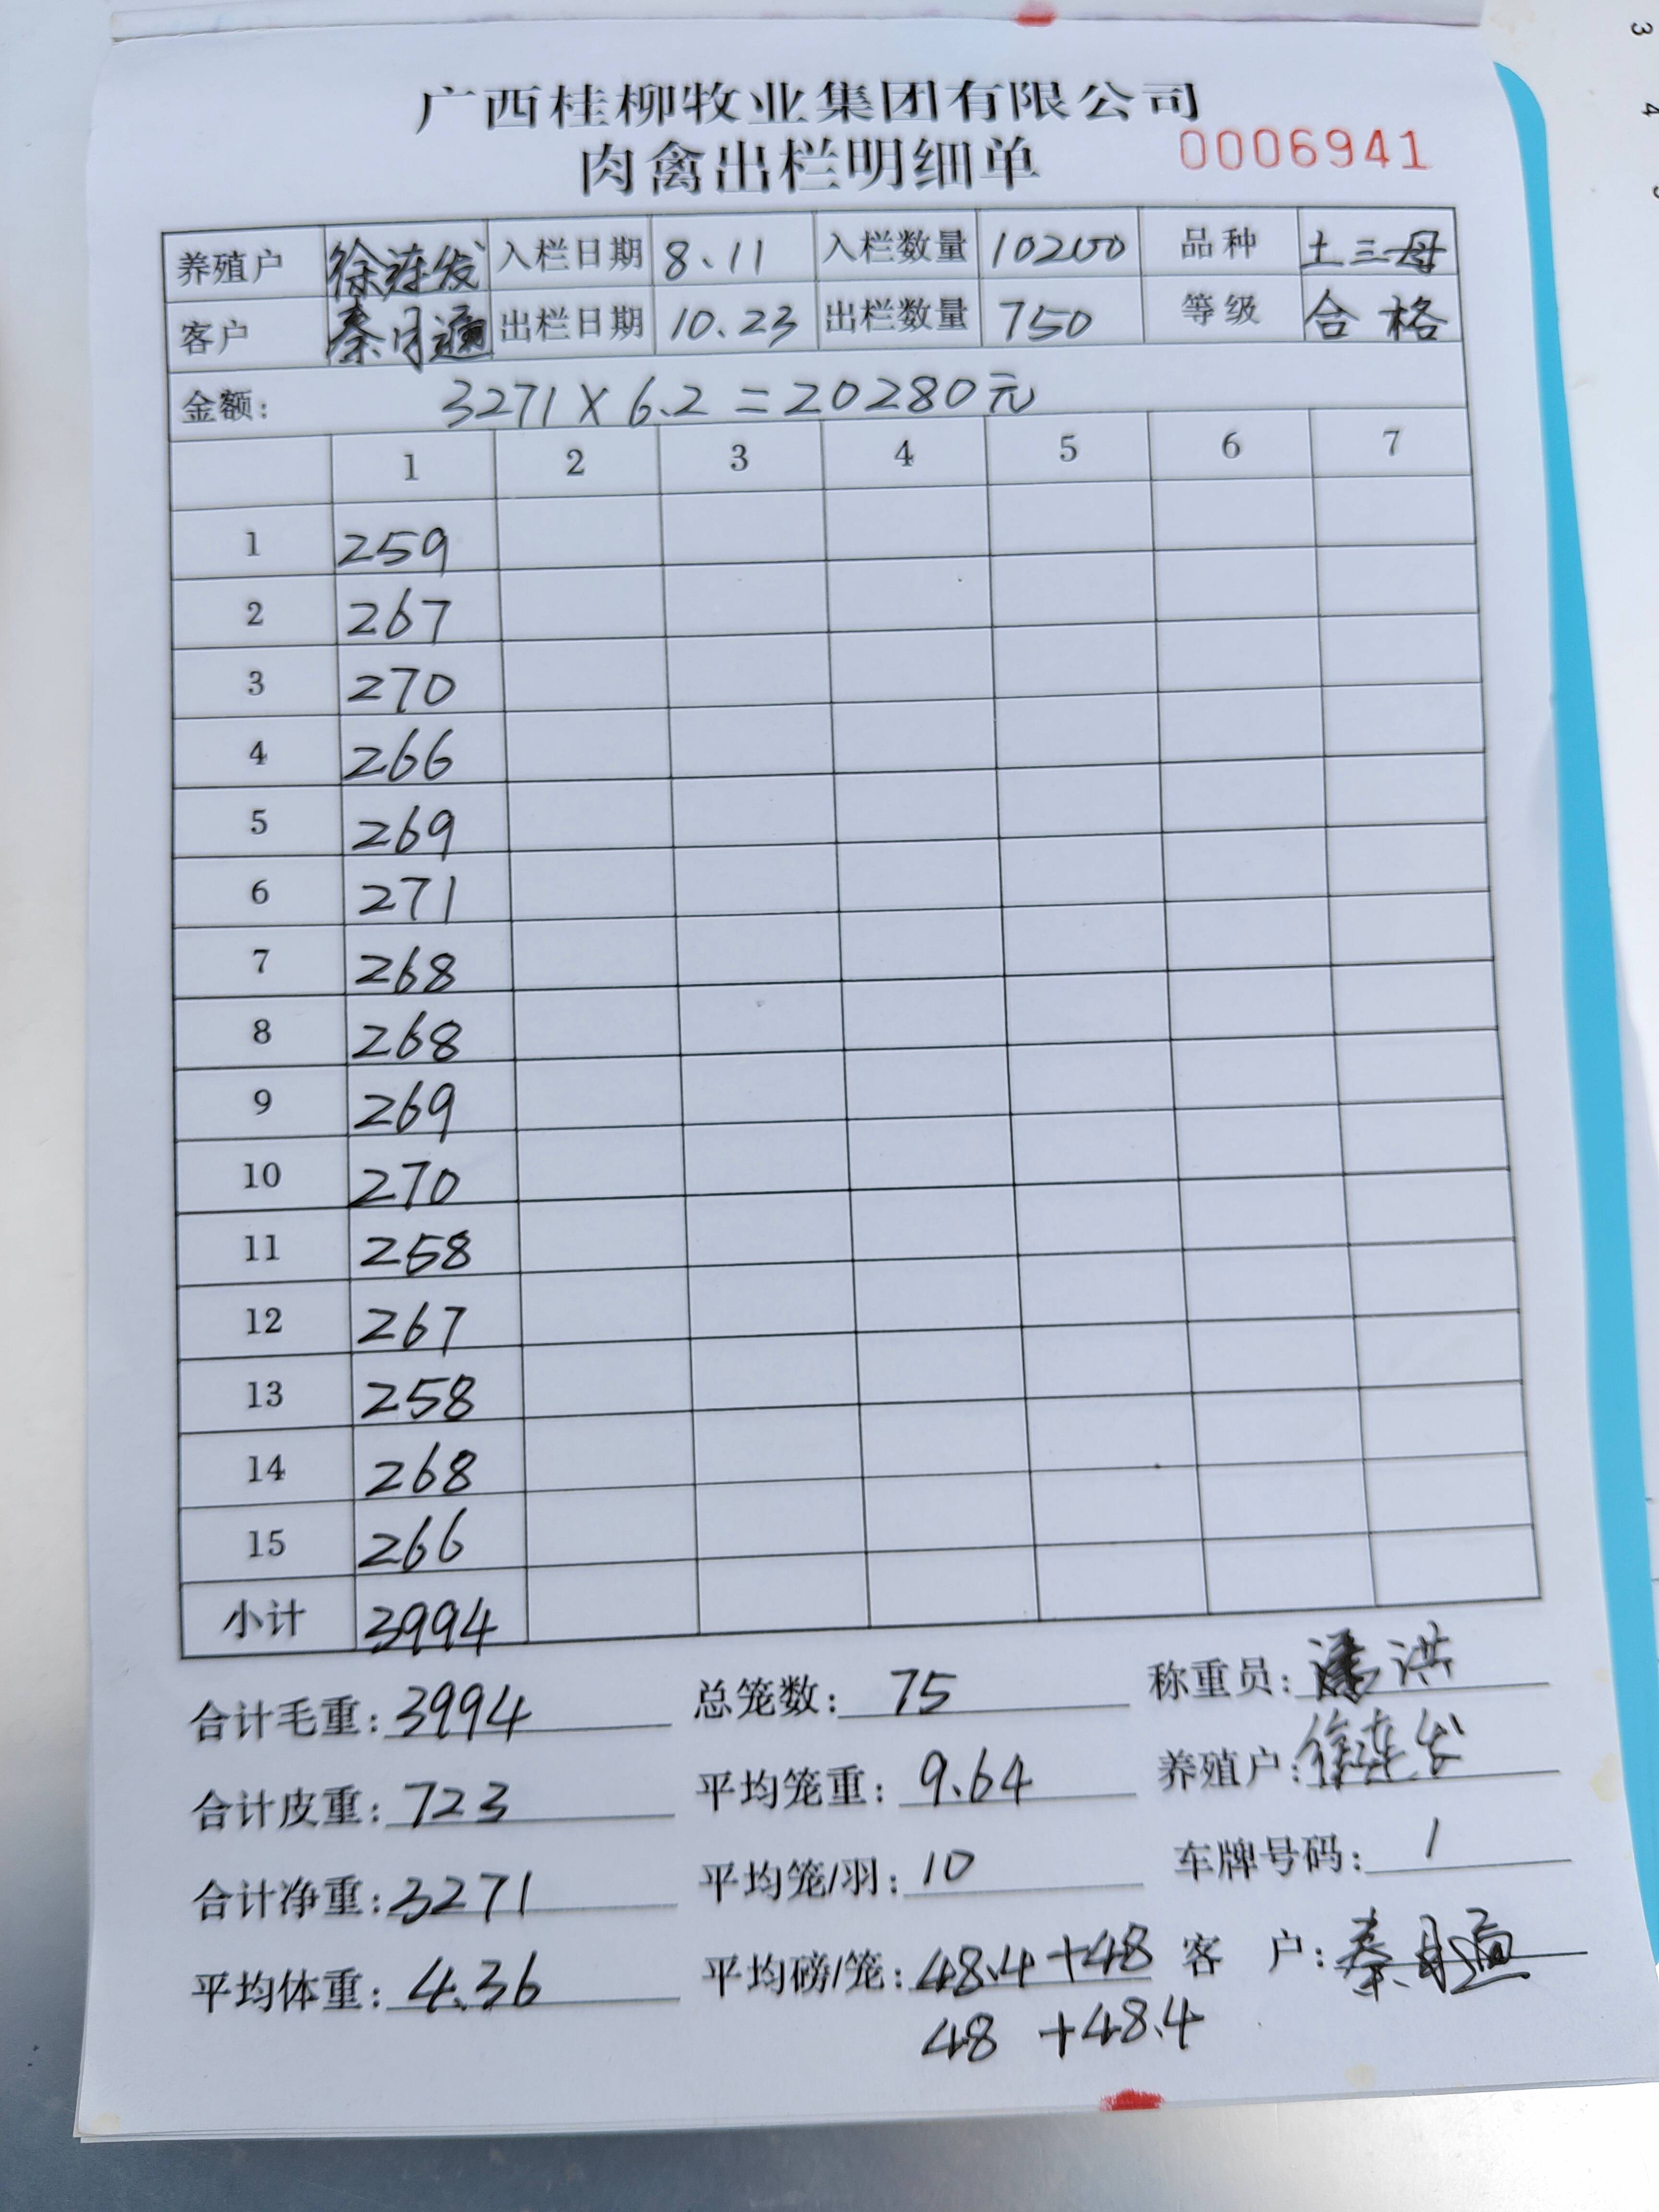 广西桂柳牧业集团有限公司
肉禽出栏明细单 0006941
养殖户 徐连发 入栏日期 8.11 入栏数量 10200 品种 土三母
客户 秦月 出栏日期 10.23 出栏数量 750 等级 合格
金额: 3271×6.2=20280元
1 2 3 4 5 6 7
1 259
2 267
3 270
4 266
5 269
6 271
7 268
8 268
9 269
10 270
11 258
12 267
13 258
14 268
15 266
小计 3994
合计毛重: 3994 总笼数: 75 称重员: 潘洪
合计皮重: 723 平均笼重: 9.64 养殖户: 徐连发
合计净重: 3271 平均笼/羽: 10 车牌号码: 1
平均体重: 4.36 平均磅/笼: 48.4+48 客 户: 秦月
48 +48.4
3
4